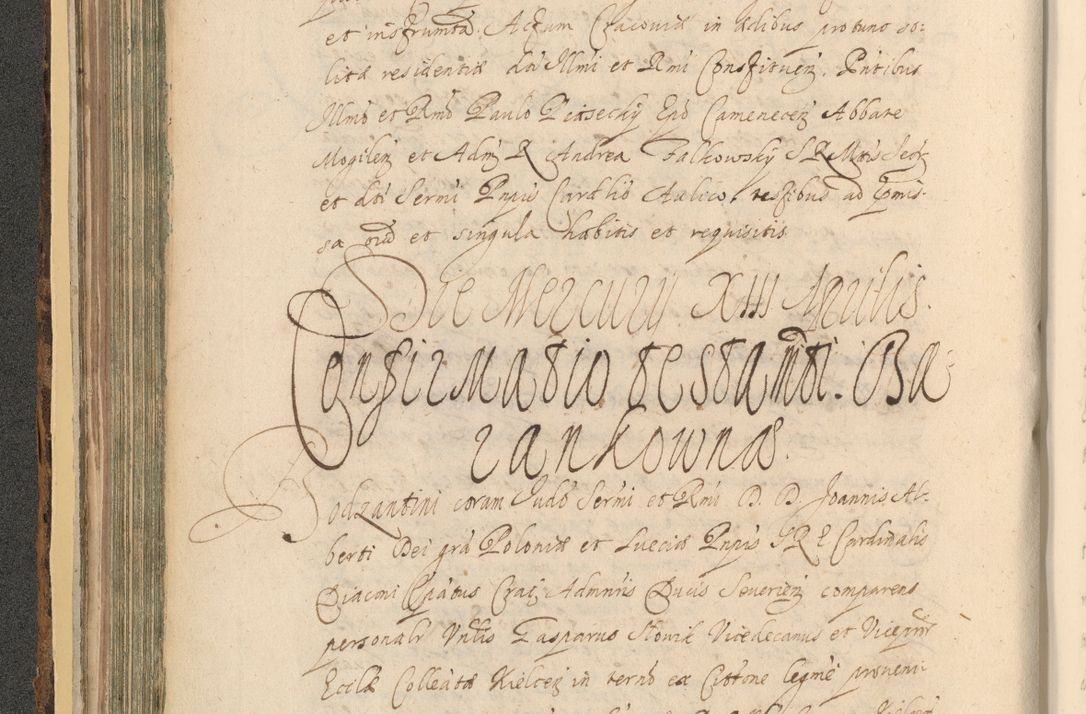 et instrumta. Actum Cracoviæ in ædibus pro tunc so-
litæ residentiæ dti Illmi et Rmi Constituen. Pntibus
Illmo et Rmo Paulo Piasecky Epo Camenecen Abbate
Mogilen et Adm R Andrea Falkowsky S R Mtis Secr
et dti Sermi Pnpis Cardlis Aulico, testibus ad pmis-
sa oia et singula habitis et requisitis
Die Mercurij XIII Aprilis.
Confirmatio testamti. Ba-
rankownæ.
Bodzantini coram Judo Sermi et Rmi D. D. Joannis Al-
berti Dei gra Poloniæ et Sueciæ Pnpis S R E Cardinalis
Diaconi Epatus Crac Admnris Ducis Severien comparens
personalr Vnblis Gasparus Slovik Vicedecanus et Viceprör
Eccliæ Colleatæ Kielcen in termo ex Citone legme proveni-